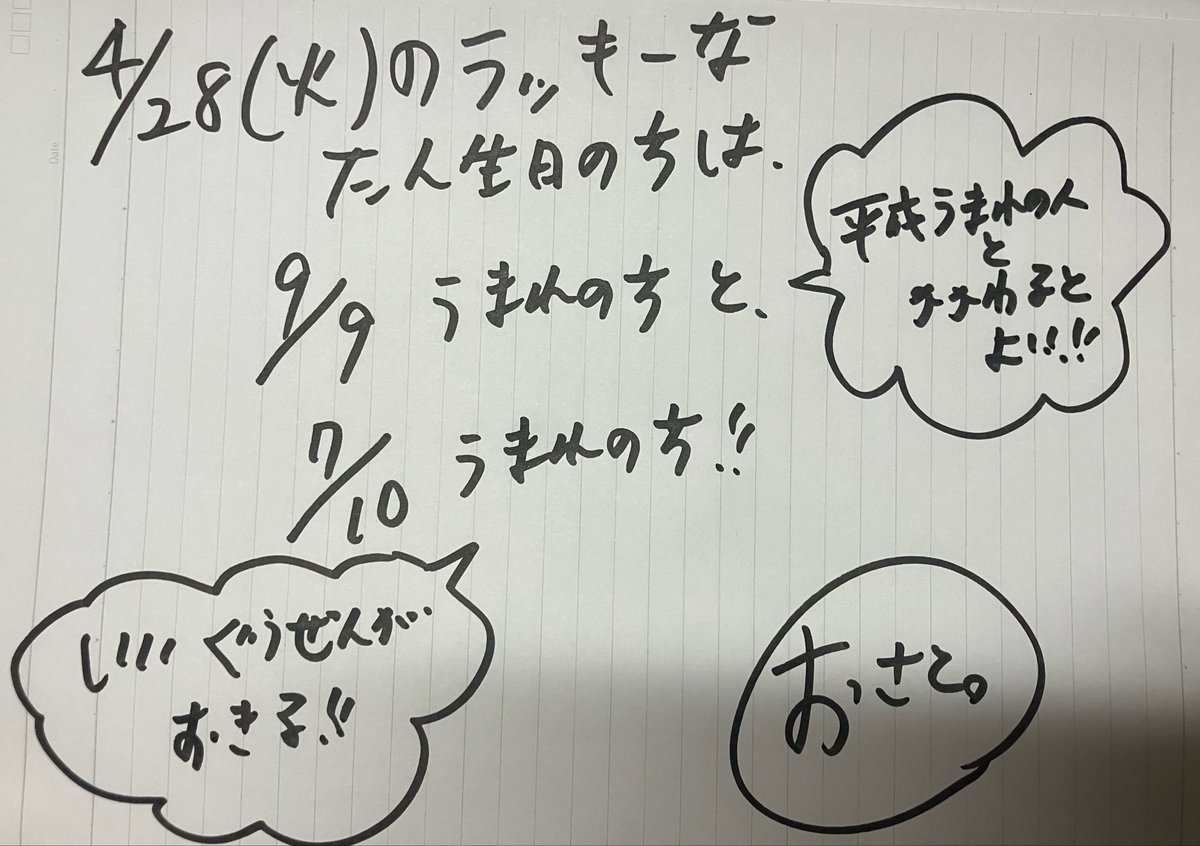 4/28(火)のラッキーな
たん生日の方は、
9/9 うまれの方と、
平成うまれの人
と
からわるると
よい!!
7/10 うまれの方!!
いい ぐうぜんが
おきる!!
おさと。
Date